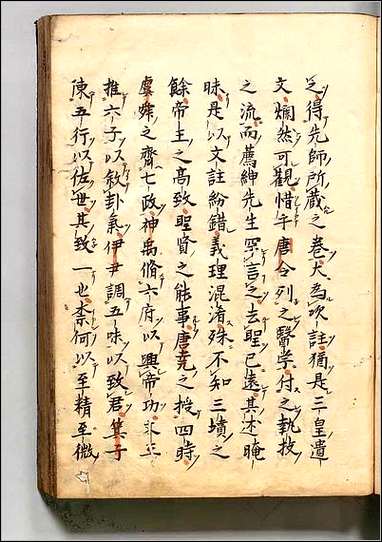 之得先師所蔵之卷大為次註猶是三皇遺
文爛然可觀惜乎唐令列之醫学付之執技
之流而薦紳先生罕言之去聖已遠其述晻
昧是以文註紛錯義理混淆殊不知三墳之
餘帝王之高致聖賢之能事唐堯之授四時
虞舜之齊七政神禹脩六府以興帝功文王
推六子以敘卦氣伊尹調五味以致君箕子
陳五行以佐世其致一也柰何以至精至微